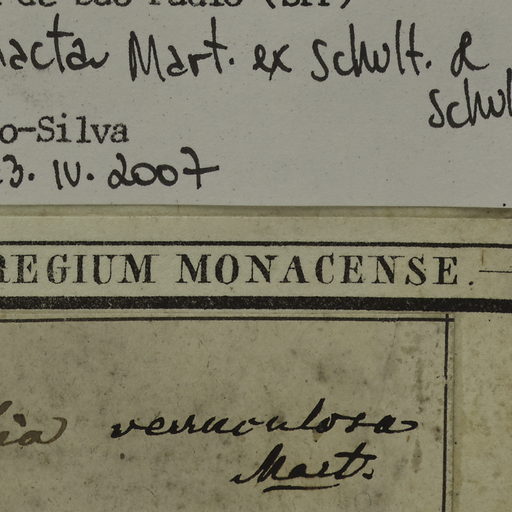 de São Paulo (SPF)
Mart. ex Schult. &
Schul
o-Silva
23. IV. 2007
REGIUM MONACENSE.
verruculosa
Mart.